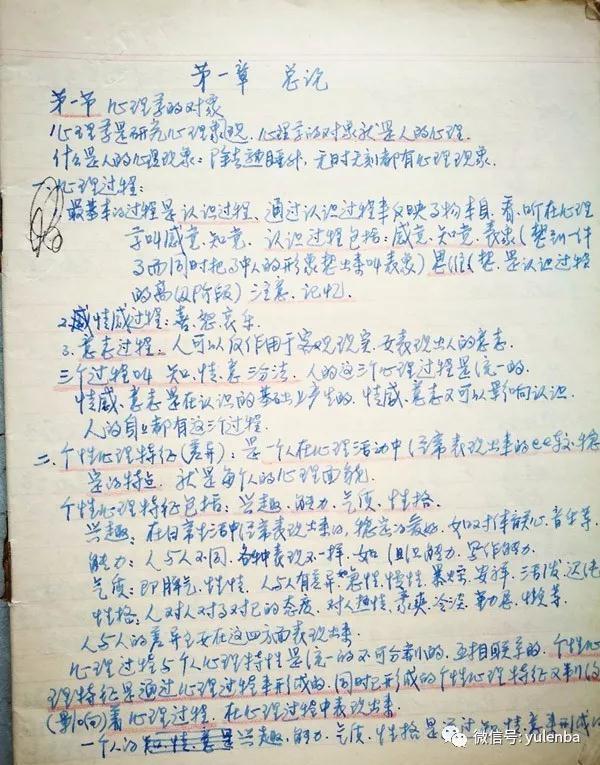 第一章 总说
第一节 心理学的对象
心理学是研究心理象现,心理学的对象就是人的心理.
什么是人的心理现象:除去 睡外,无时无刻都有心理现象.
一.心理过程:
最基本的过程是认识过程、通过认识过程来反映事物本身.看.听在心理
学叫感觉.知觉. 认识过程包括:感觉.知觉.表象(想到一件
事而同时把事中人的形象想出来叫表象)思 想.是认识过程
的高级阶段)注意.记忆.
2.情感过程:喜.怒.哀.乐.
3.意志过程. 人可以反作用于客观现实.要表现出人的意志.
三个过程叫 知.情.意三分法. 人的这三个心理过程是统一的.
情感.意志是在认识的基础上产生的.情感.意志又可以影响认识.
人的身上都有这三个过程.
二.个性心理特征(差异):是一个人在心理活动中经常表现出来的 较稳
定的特点. 就是每个人的心理面貌.
个性心理特征包括:兴趣.能力.气质.性格.
兴趣:在日常生活中经常表现出来的,稳定的爱好.如对体育关心.音乐等.
能力:人与人不同.各种表现不一样.如组织能力.写作能力.
气质:即脾气.性情.人与人有差异.急性.慢性.暴 .安详.活泼.迟
性格:人对人对事对己的态度.对人热情.豪爽.冷淡.勤 .懒等.
人与人的差异主要在这四方面表现出来.
心理过程与个人心理特性是统一的不可分割的.互相联系的.个性心
理特征是通过心理过程来形成的.同时已形成的个性心理特征又制约
(影响)着心理过程.在心理过程中表现出来.
一个人的 兴趣.能力.气质.性格是通过知.情.意来形成的
微信号: yulenba